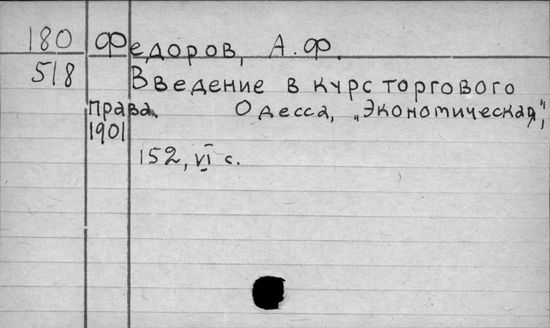 180 Федоров, А.Ф.
518 Введение в курс торгового
права. Одесса, „Экономическая",
1901
152, VI с.